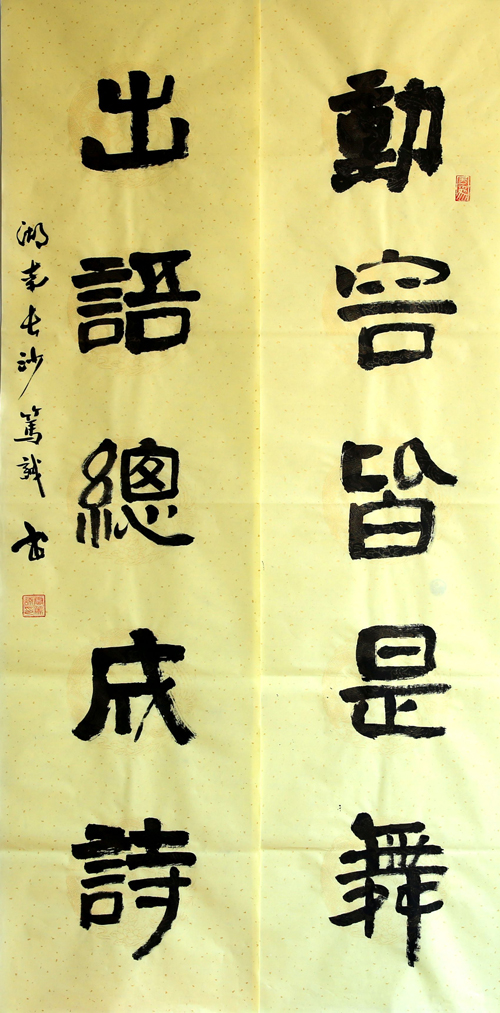 動容皆是舞
出語總成詩
湖南长沙篤誠書